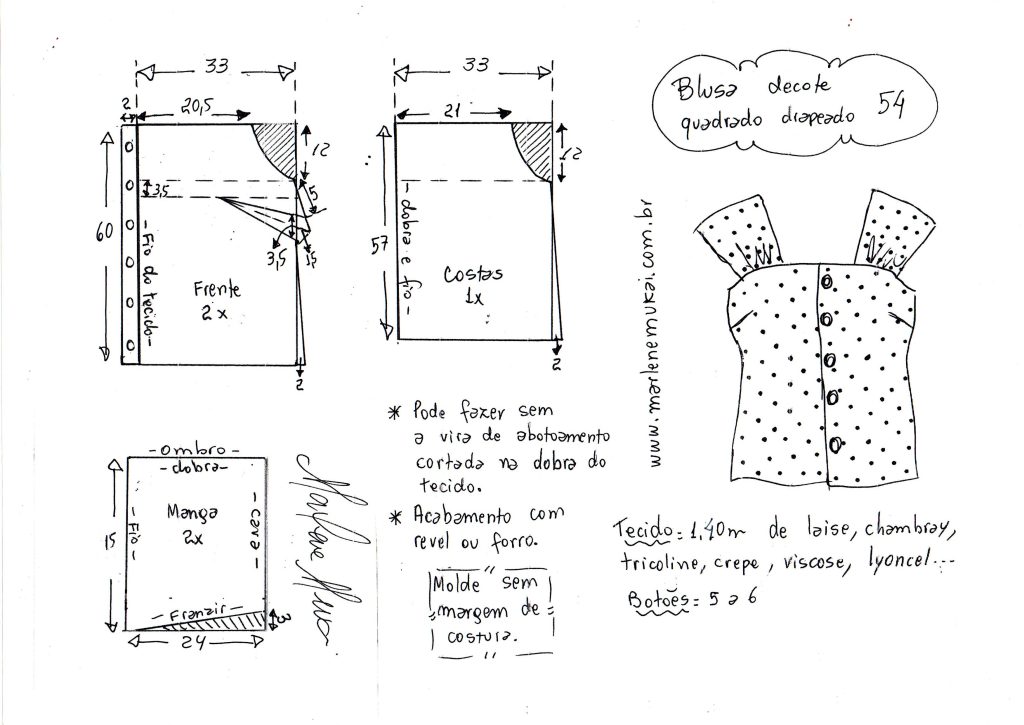 33
2
20,5
12
3,5
5
3,5
1,5
60
- Fio do tecido -
Frente
2x
2
33
21
12
57
- dobra e fio -
Costas
1x
2
Blusa decote
quadrado drapeado 54
www.marlenemukai.com.br
- ombro -
- dobra -
Manga
2x
15
- Fio -
- cava -
- Franzir -
3
24
* Pode fazer sem
a vira de abotoamento
cortada na dobra do
tecido.
* Acabamento com
revel ou forro.
Molde sem
margem de
costura.
Tecido: 1,40m de laise, chambray,
tricoline, crepe, viscose, lyoncel...
Botões: 5 a 6